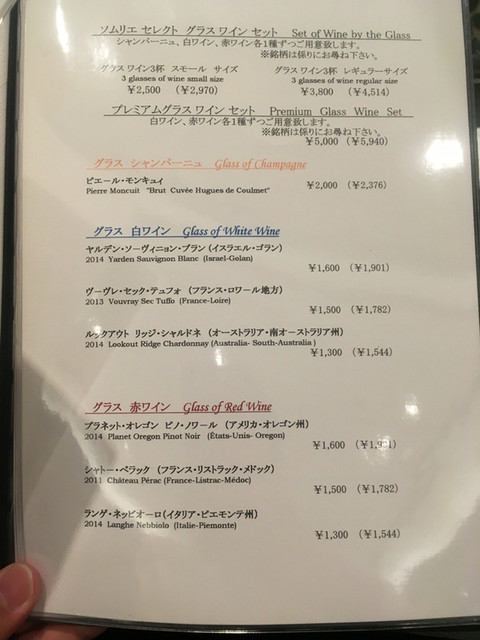 ソムリエ セレクト グラス ワイン セット Set of Wine by the Glass
シャンパーニュ、白ワイン、赤ワイン各1種ずつご用意致します。
※銘柄は係りにお尋ね下さい。
グラスワイン3杯 スモール サイズ グラスワイン3杯 レギュラーサイズ
3 glasses of wine small size 3 glasses of wine regular size
¥2,500 (¥2,970) ¥3,800 (¥4,514)
プレミアムグラス ワイン セット Premium Glass Wine Set
白ワイン、赤ワイン各1種ずつご用意致します。
※銘柄は係りにお尋ね下さい。
¥5,000 (¥5,940)
グラス シャンパーニュ Glass of Champagne
ピエール・モンキュイ
Pierre Moncuit "Brut Cuvée Hugues de Coulmet" ¥2,000 (¥2,376)
グラス 白ワイン Glass of White Wine
ヤルデン・ソーヴィニョン・ブラン (イスラエル・ゴラン)
2014 Yarden Sauvignon Blanc (Israel-Golan)
¥1,600 (¥1,901)
ヴーヴレ・セック・テュフォ (フランス・ロワール地方)
2013 Vouvray Sec Tuffo (France-Loire)
¥1,500 (¥1,782)
ルックアウト リッジ・シャルドネ (オーストラリア・南オーストラリア州)
2014 Lookout Ridge Chardonnay (Australia- South-Australia )
¥1,300 (¥1,544)
グラス 赤ワイン Glass of Red Wine
プラネット・オレゴン ピノ・ノワール (アメリカ・オレゴン州)
2014 Planet Oregon Pinot Noir (États-Unis- Oregon)
¥1,600 (¥1,901)
シャトー・ペラック (フランス・リストラック・メドック)
2011 Château Pérac (France-Listrac-Médoc)
¥1,500 (¥1,782)
ランゲ・ネッビオーロ(イタリア・ピエモンテ州)
2014 Langhe Nebbiolo (Italie-Piemonte)
¥1,300 (¥1,544)